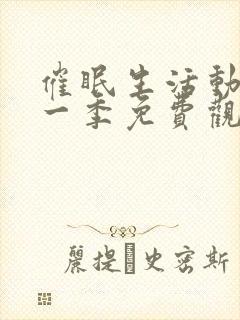 催眠生活動
一季免費觀
麗提 史密斯